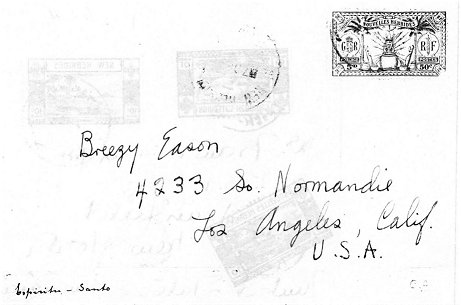 NOUVELLES HEBRIDES
G R R F
5D 50C
Breezy Eason
4233 So. Normandie
Los Angeles, Calif.
U.S.A.
Espiritu - Santo